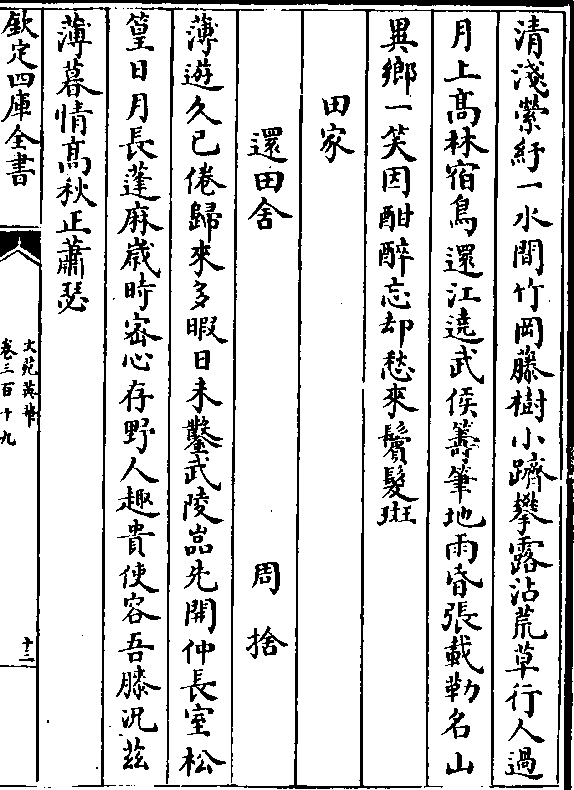 清淺縈紆一水間竹岡藤樹小躋攀露沾荒草行人過
月上髙林宿鳥還江遶武侯籌筆地雨昏張載勒名山
異鄉一笑因酣醉忘却愁來鬢髮斑
田家
還田舍 周捨
薄遊久已倦歸來多暇日未鑿武陵嵓先開仲長室松
篁日月長蓬麻嵗時宻心存野人趣貴使容吾膝況茲
薄暮情髙秋正蕭瑟
欽定四庫全書
文苑英華
卷三百十九
十二